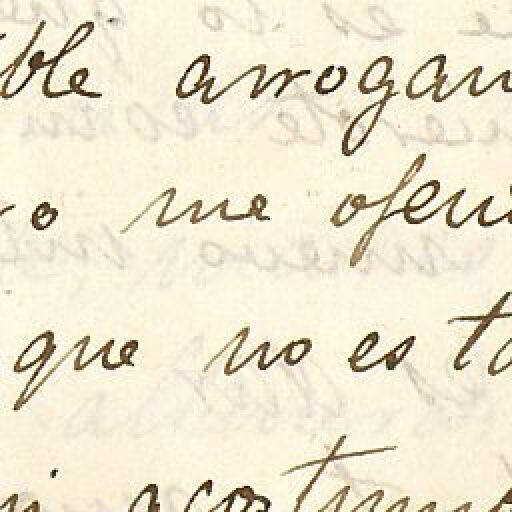 ble arrogan
o me ofen
que no es ta
acostum